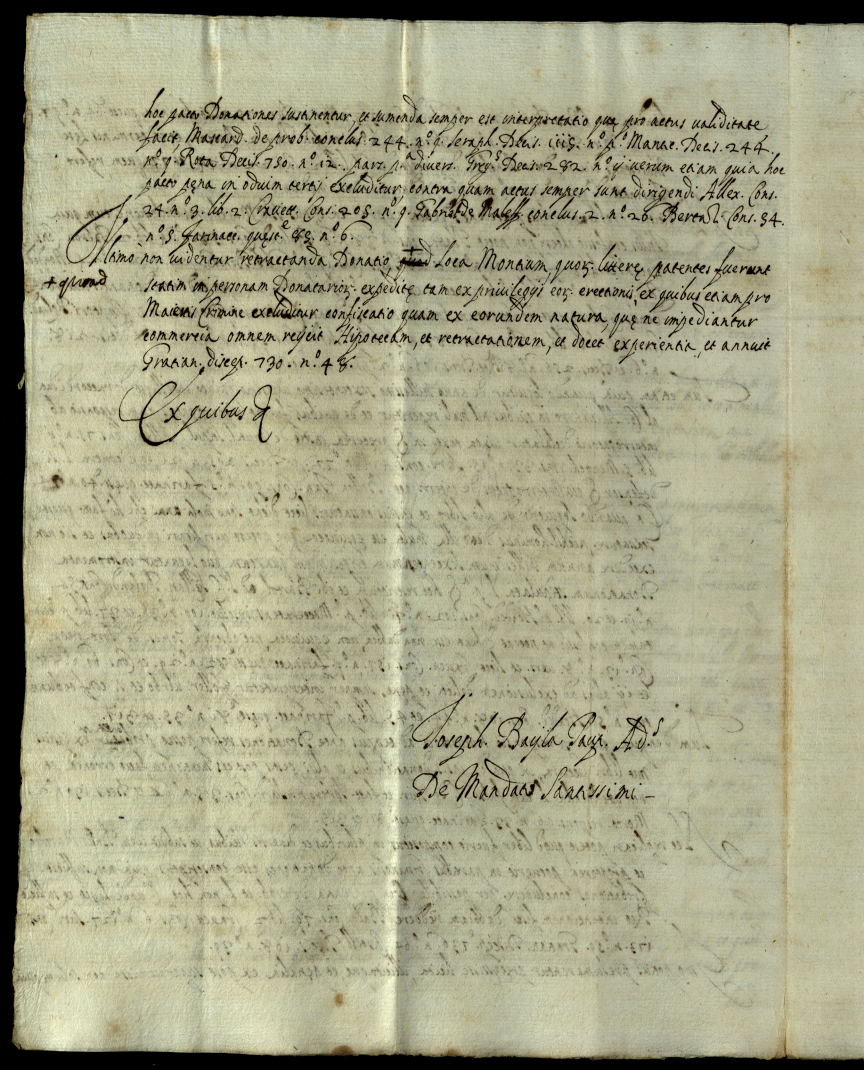 hoc pacto Donationes sustinentur, et sumenda semper est interpretatio quę pro actus validitate
facit Mascard. de prob. conclus. 244. n.º 9. Seraph. Decis. 1115. n.º p.º Mant. Decis. 244.
n.º 7. Rota Decis. 750. n.º 12. par. p.ª divers. Greg.s Decis. 282. n.º verum etiam quia hoc
pacto pęna in odium tertii excluditur contra quam actus semper sunt dirigendi Allex. Cons.
24. n.º 3. lib. 2. Cravett. Cons. 205. n.º 9. Gabriel de Malef. conclus. 2. n.º 26. Bertaz. Cons. 54.
n.º 5. Farinacc. quęst.e 85. n.º 6.
non videntur retractanda Donatio, + Loca Montium quor. litterę patentes fuerunt
+ quoad
statim in personam Donatarior. expeditę tam ex privilegiis eor. erectionis, ex quibus etiam pro
Maiestatis Crimine excluditur confiscatio quam ex eorundem natura quę ne impediantur
commercia omnem reijcit Hipotecam, et retractationem, ut docet experientia, et annuit
Gratian. discep. 730. n.º 48.
Ex quibus &
Joseph Bayla Ad.s
De Mandato Sanctissimi –